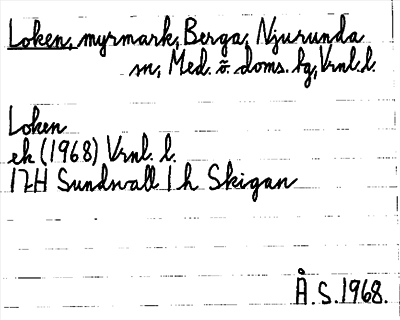 Loken, myrmark, Berga, Njurunda
sn, Med. ö. doms. hg, Vrnl. l.
Loken
ek (1968) Vrnl. l.
17H Sundsvall 1 h Skigan
Å.S. 1968.